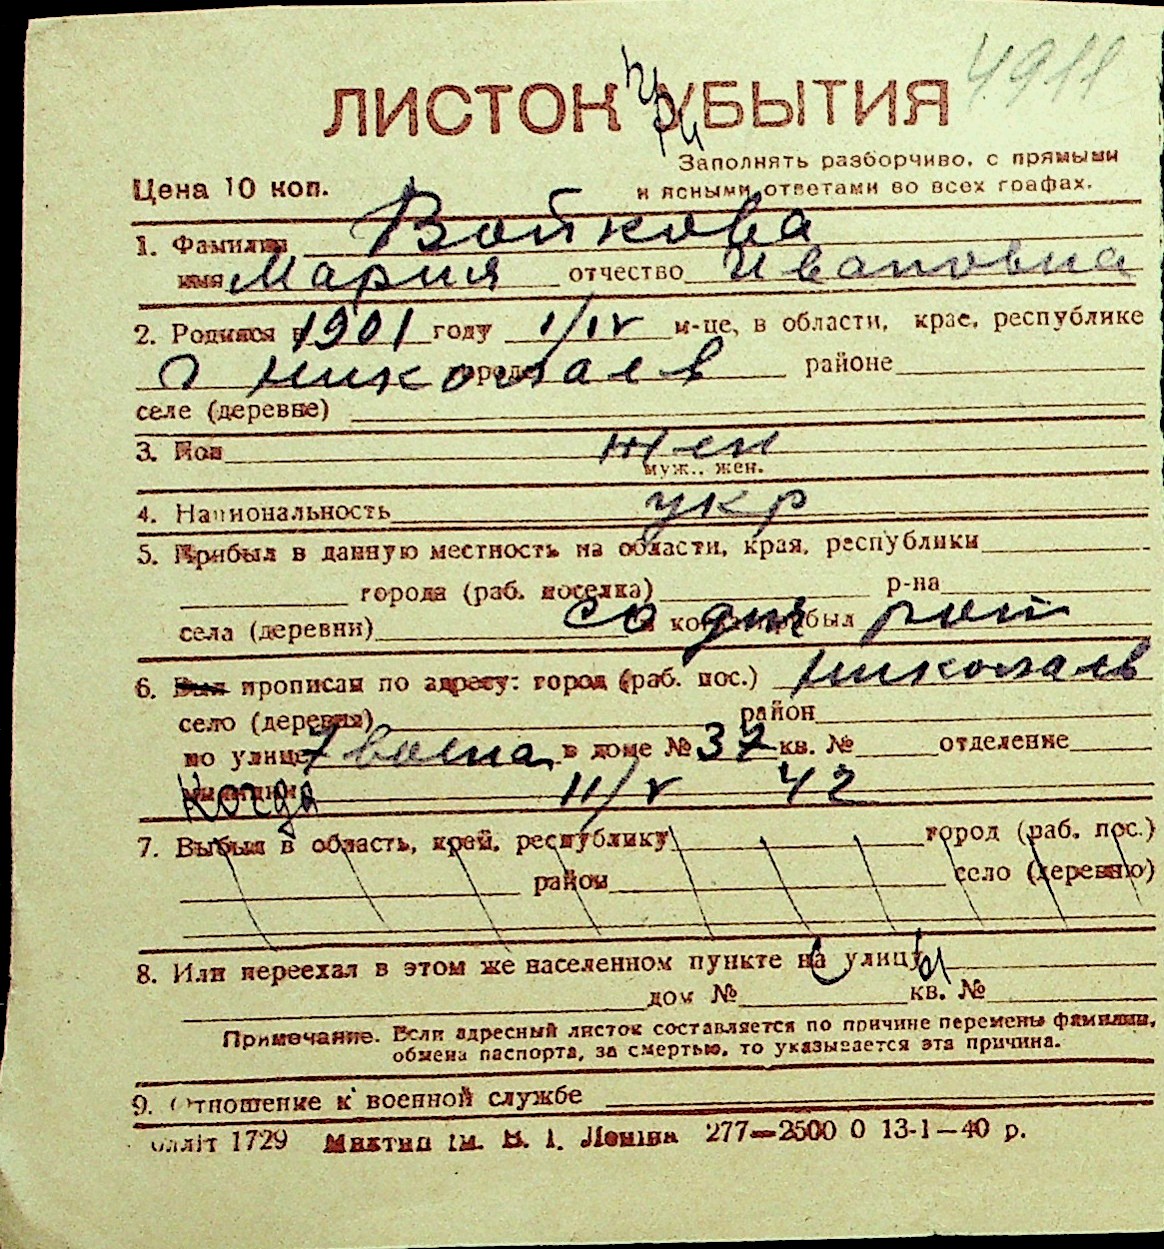 4911
ЛИСТОК при УБЫТИЯ
Заполнять разборчиво, с прямыми
Цена 10 коп.
и ясными ответами во всех графах.
1. Фамилия Войкова
имя Мария отчество Ивановна
2. Родился в 1901 году 1/IV м-це, в области, крае, республике
г Николаев городе районе
селе (деревне)
3. Пол жен
муж., жен.
4. Национальность укр
5. Прибыл в данную местность из области, края, республики
города (раб. поселка) р-на
села (деревни) со дня рож
6. Был прописан по адресу: город (раб. пос.) Николаев
село (деревня) район
по улице в доме № 37 кв. № отделение
Когда 11/V 42
7. Выбыл в область, край, республику город (раб. пос.)
район село (деревню)
8. Или переехал в этом же населенном пункте с улицы
дом № кв. №
Примечание. Если адресный листок составляется по причине перемены фамилии,
обмена паспорта, за смертью, то указывается эта причина.
9. Отношение к военной службе
1729 ім. В. І. Леніна 277—2500 0 13-1—40 р.